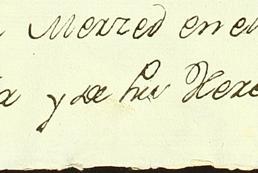 Merzed en el
y de su Here